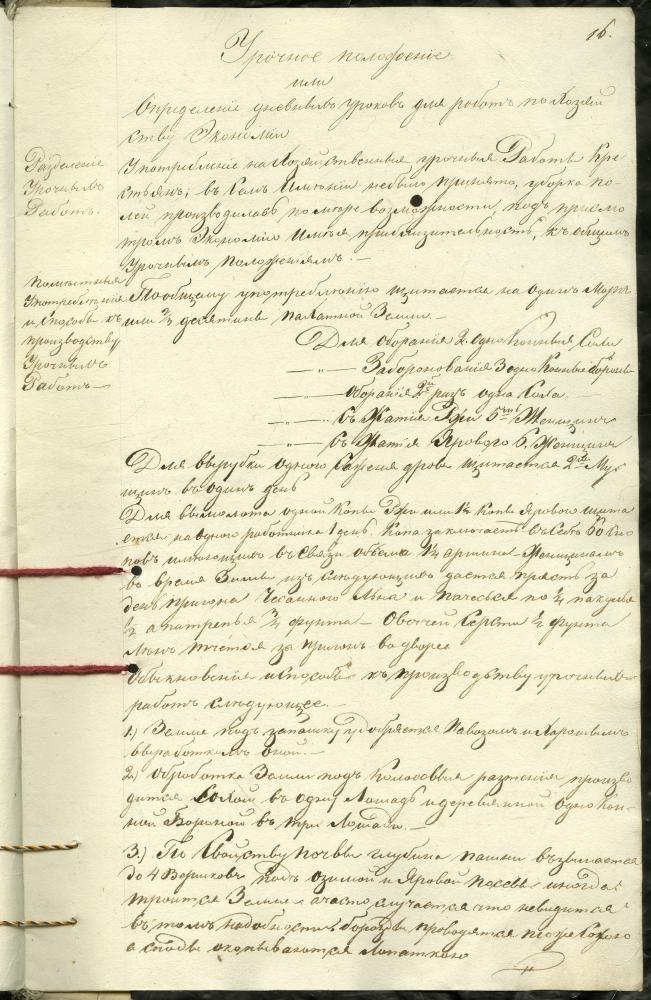 16.
Урочное положеніе
или
Определеніе дневныхъ уроковъ для работъ по Хозяй
ству Экономіи
Разделеніе
Урочныхъ
Работъ.
Употребленіе на Хозяйственныя урочныя Работы Кре
стьянъ, въ семъ Имѣніи небыло принято, уборка по-
лей производилась по мѣре возможности, подъ присмо
тромъ Экономіи Имѣя приблизительность, къ общимъ
Урочнымъ Положеніямъ. —
Помѣстныя
Употребленія
и способы къ
производству
Урочныхъ
Работъ —
По общему употребленію щитается на одинъ Моргъ
или 2/3 десятины пахатной Земли. —
Для оборанія 2. одно Конныя Сохи
— " — Заборонованія 3 одно Конныхъ бороны
— " — оборанія 2й разъ одна Соха. —
— " — съ Жатія Ржи 5ть Женщинъ
— " — съ Жатія Яроваго 6. Женщинъ
Для вырубки одного Сажени дровъ щитается 2 Му
щинъ въ одинъ день
Для вымолота одной Копы Ржи или 1½ Копы Яроваго щита
ется на одного работника 1 день. Копа заключаетъ въ себѣ 60 Сно
повъ имѣющихъ въ связи объема 1¼ аршина Женщинамъ
въ время Зимы изъ слѣдующихъ дается прясть за
день пригона Чесанного Льна и пачесья по ¼ пакулья
½ а патрепья ¾ фунта — Овечей Серсти ½ фунта
за пригонъ во дворе
Обыкновенія и Способы къ производству урочныхъ
работъ слѣдующее. —
1.) Земля подъ запашку удобряется Навозомъ и Хорошимъ
выработкомъ оной. —
2.) Обработка Земли подъ Колосовыя разтенія произво
дится Сохой въ одну Лошадь и деревянной одно Кон-
ной Бороной въ три Лошади. —
3.) По Свойству почвы глубина пашни
до 4 Вершковъ Подъ озимой и Яровой посевы иногда
троится Земля а часто случается что невидится
въ томъ надобности борозды проводятся тоже Сохою
а окапываются Лопаткою